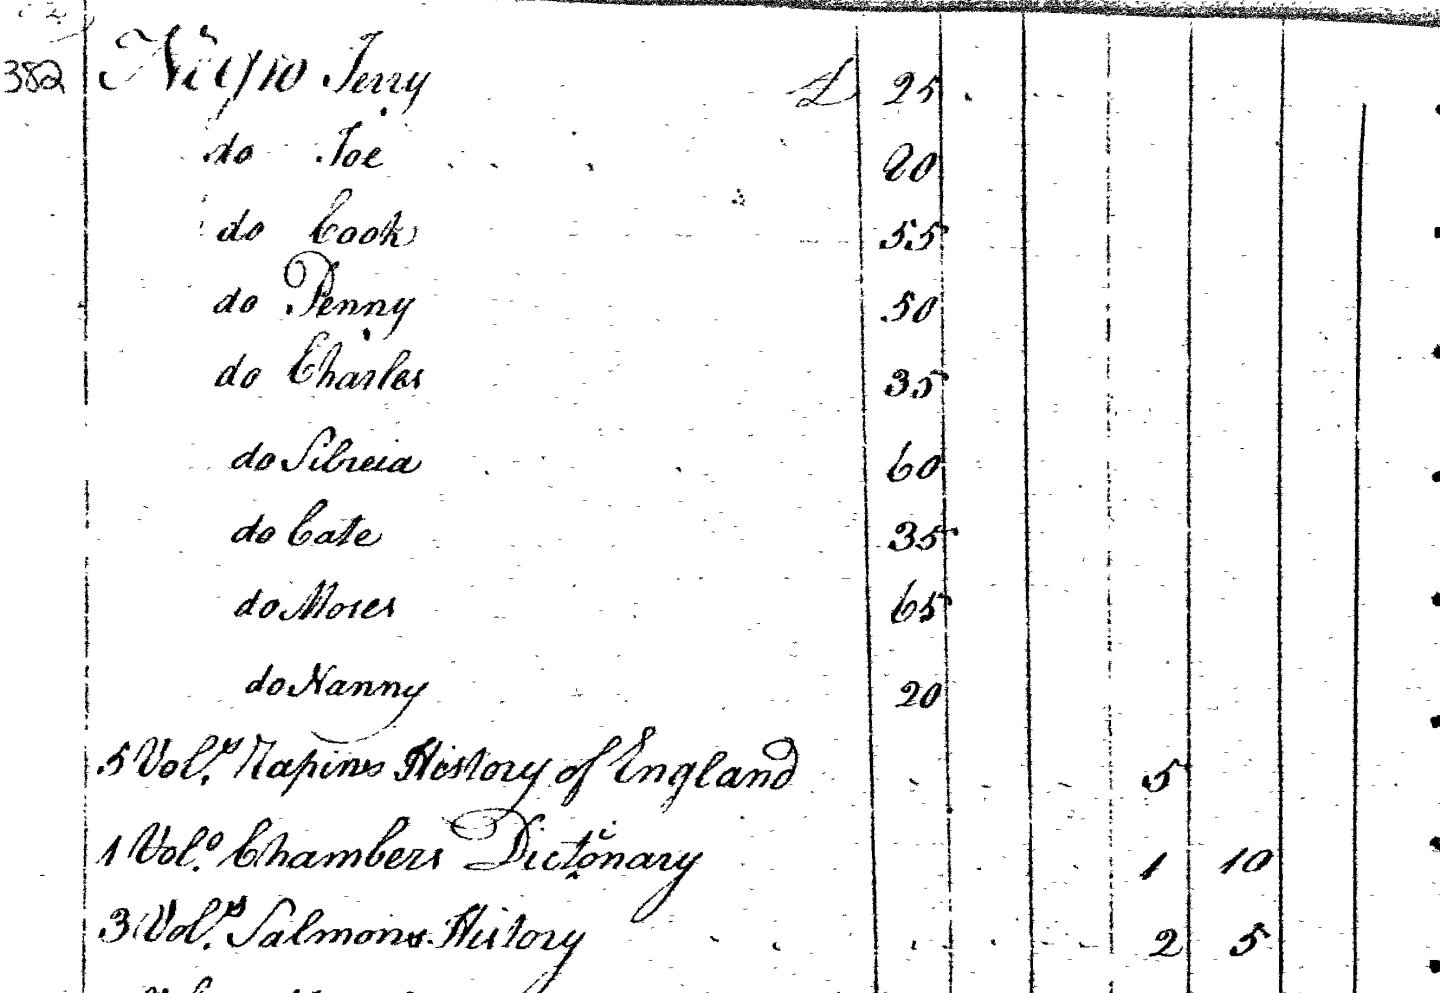 382 Negro Jerry £ 25
do Joe 20
do Cook 55
do Penny 50
do Charles 35
do Silvia 60
do Cate 35
do Moses 65
do Nanny 20
5 Vol.s Rapins History of England 5
1 Vol.o Chambers Dictionary 1 10
3 Vol.s Salmons History 2 5